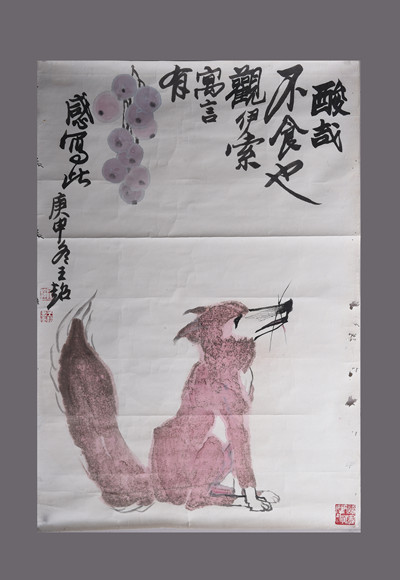 酸哉
不食也
觀伊索
寓言
有
感寫此
庚申冬王